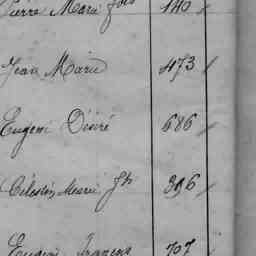 Pierre Marie fils 140
Jean Marie 473
Eugène Désiré 686
Célestin Marie fils 396
Eugène François 707